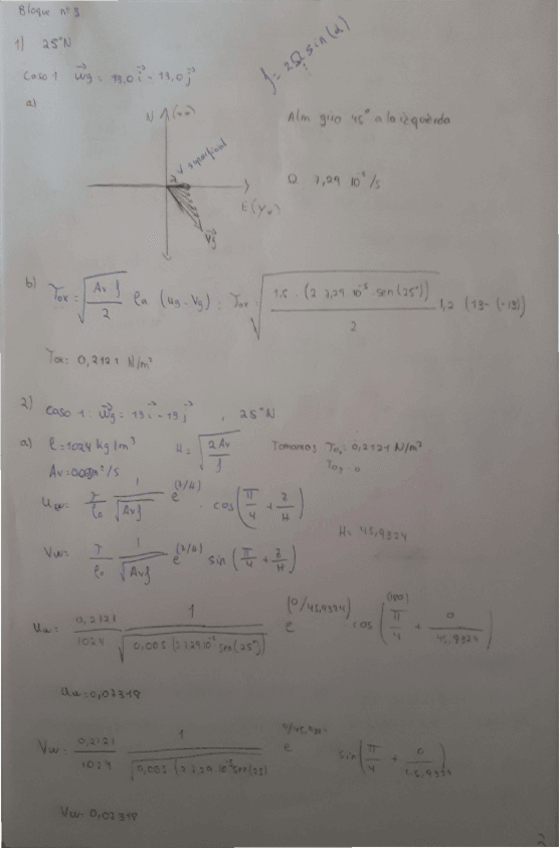 Bloque nº3
1) 25°N
f = 2Ω sin(α)
Caso 1 Wg = 19,0 i - 19,0 j
a)
N (vo)
V superficial
Vg
Alm giro 45° a la izquierda
Ω 7,29 10⁻⁵/s
b) Tox = √(Av·f / 2) ρa (ug - Vg) : Tox √(1.5 · (2 7,29 10⁻⁵ sen(25°)) / 2) 1,2 (19 - (-19))
Tox = 0,2121 N/m²
2) Caso 1: Wg = 19 i - 19 j , 25°N
a) ρ = 1024 kg/m³ H = √(2Av / f) Tomamos Tox = 0,2121 N/m²
Toy = 0
Uw = T/ρo 1/√(Av f) e^(z/H) · cos(π/4 + z/H)
H = 45,9324
Vw = T/ρo 1/√(Av f) e^(z/H) sin(π/4 + z/H)
Uw = 0,2121/1024 1/√(0,065 (2 7,29 10⁻⁵ sen(25°))) e^(0/45,9324) cos((180) π/4 + 0/45,9324)
Uw = 0,02348
Vw = 0,2121/1024 1/√(0,065 (2 7,29 10⁻⁵ sen(25))) e sin(π/4 + 0/45,9324)
Vw = 0,02348
2